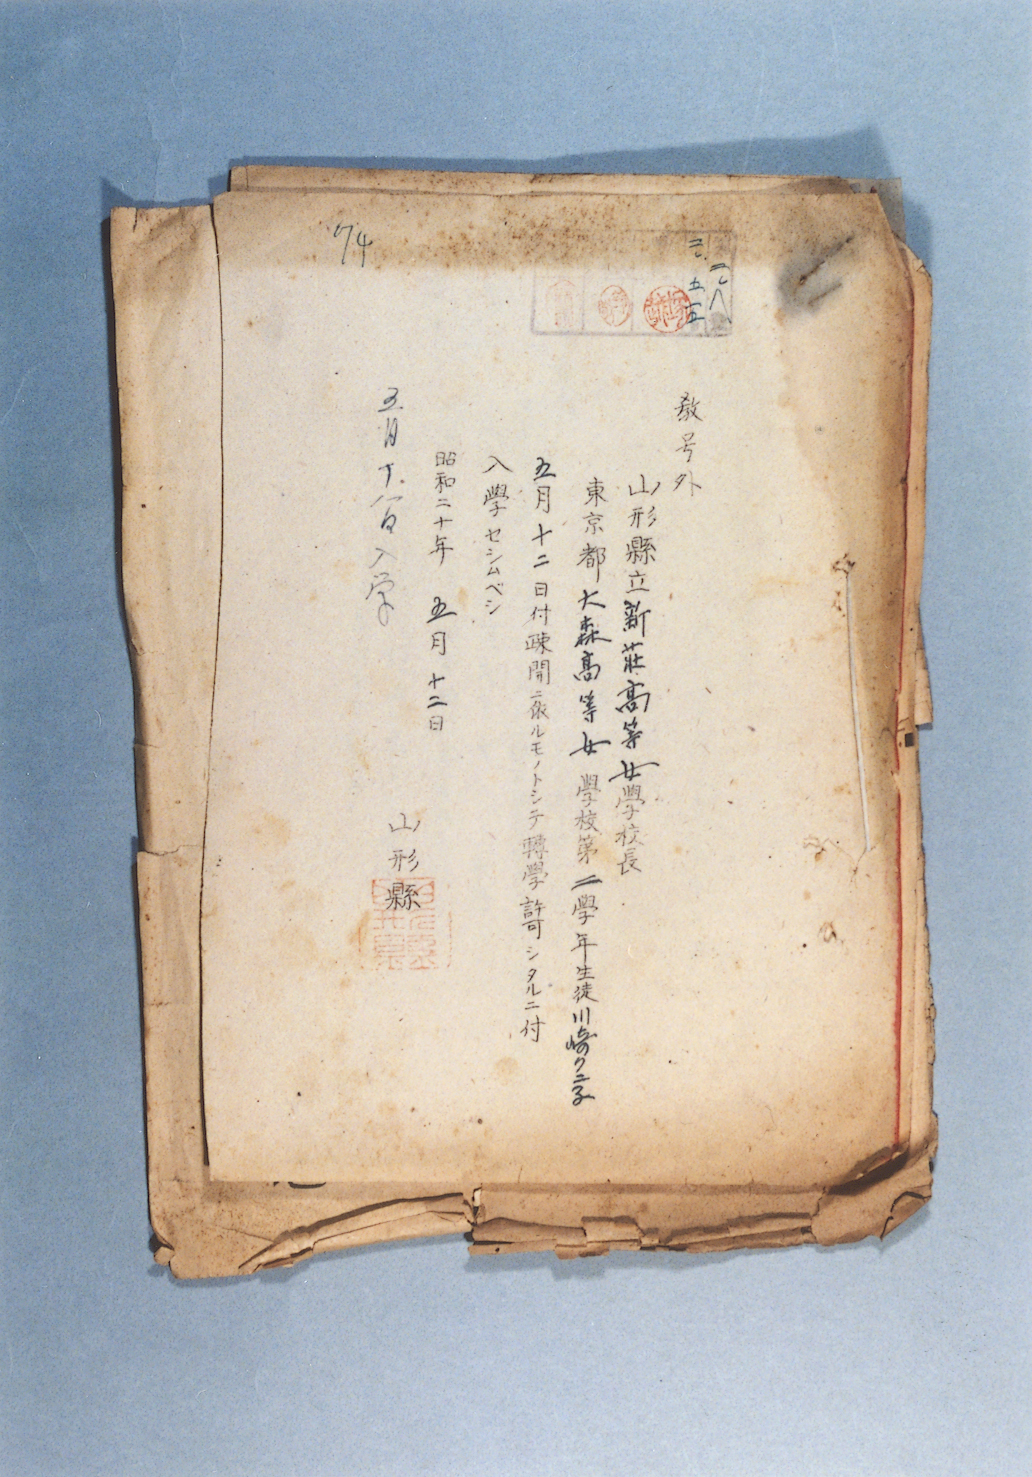 教号外
山形縣立新莊高等女學校長
東京都大森高等女學校第二學年生徒川崎クニ子
五月十二日付疎開ニ依ルモノトシテ轉學許可シタルニ付
入學セシムベシ
昭和二十年五月十二日
山形縣
入学
74